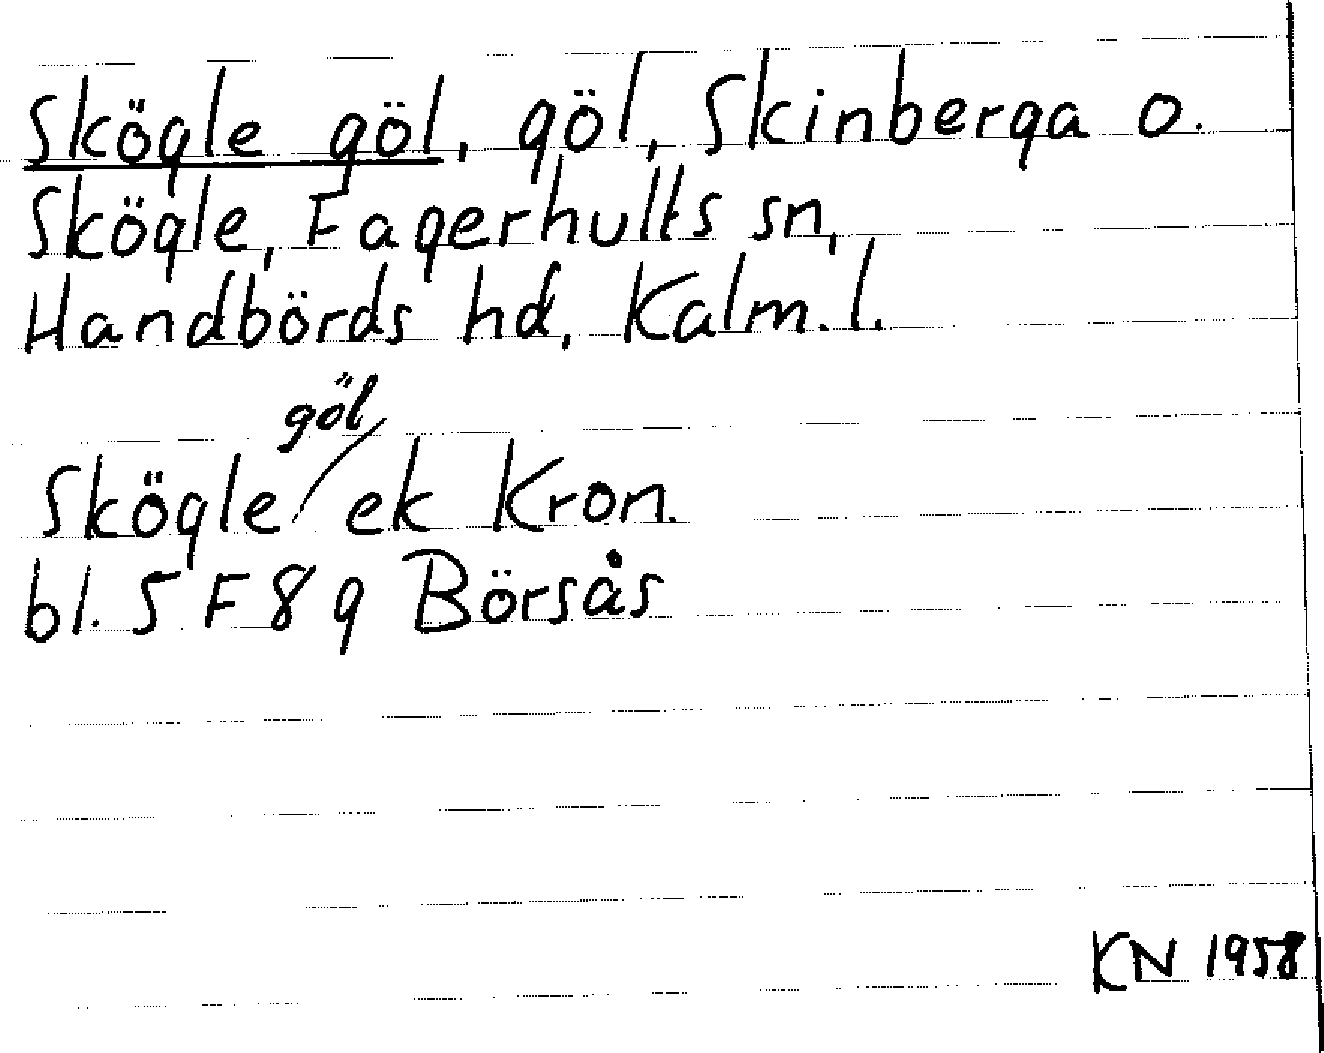 Skögle göl, göl, Skinberga o.
Skögle, Fagerhults sn,
Handbörds hd, Kalm. l.
göl
Skögle/ek Kron.
bl. 5 F 8 g Börsås
KN 1958